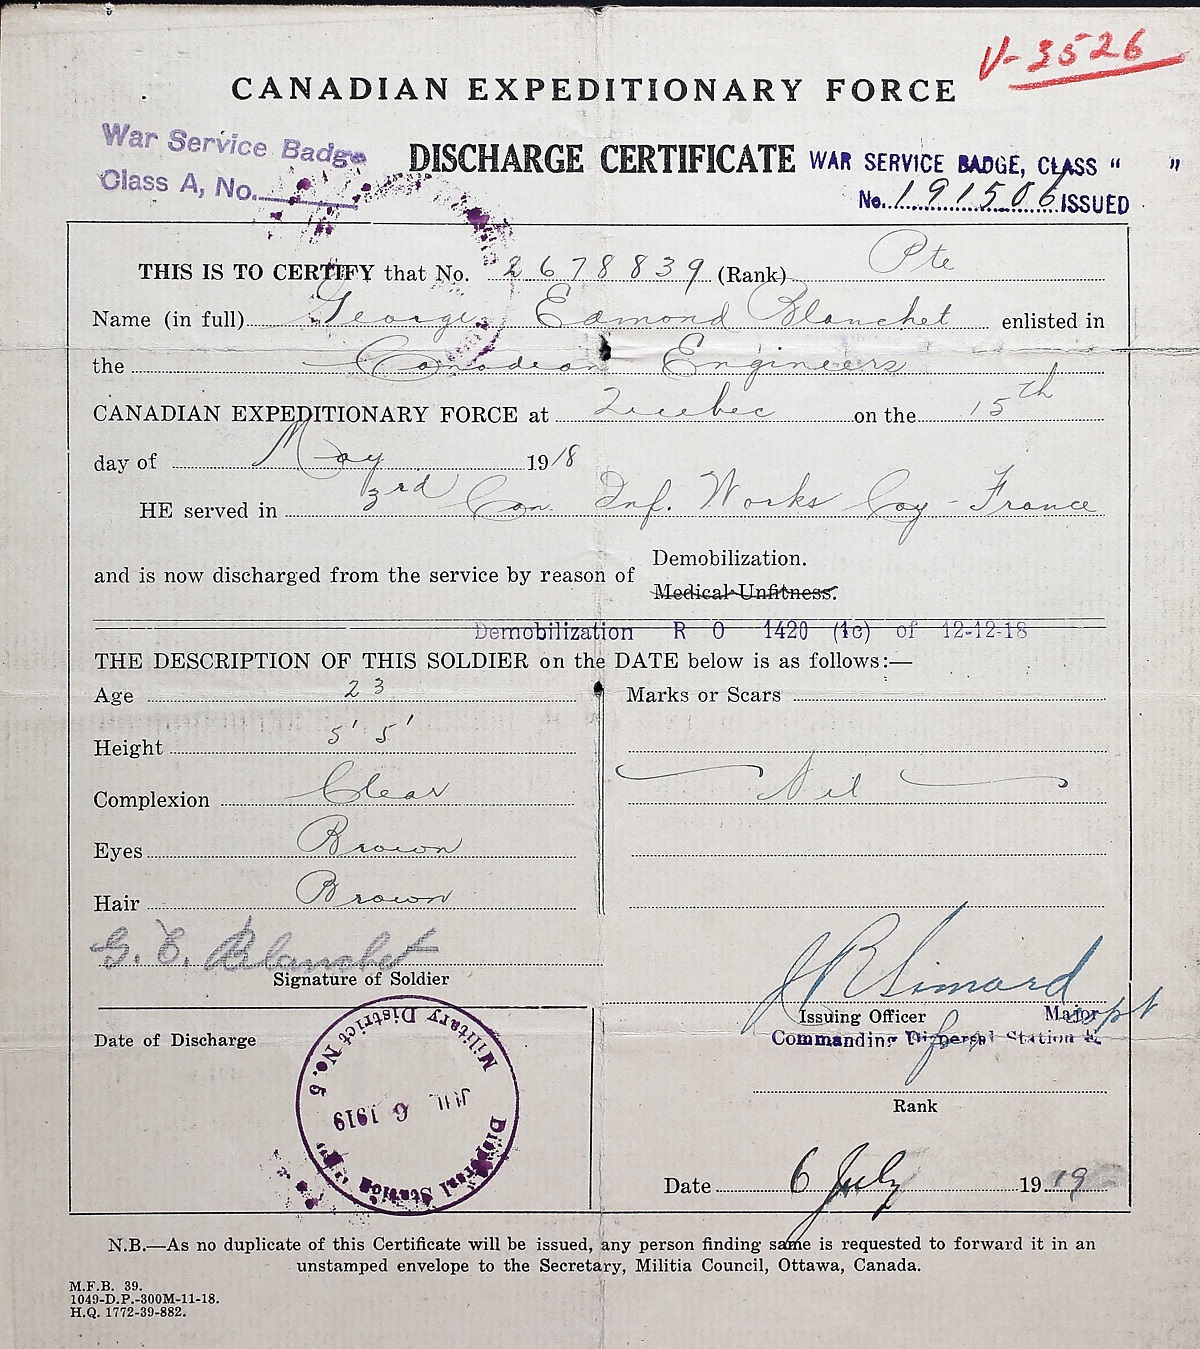 V-3526
CANADIAN EXPEDITIONARY FORCE
War Service Badge
Class A, No.
DISCHARGE CERTIFICATE
WAR SERVICE BADGE, CLASS " "
No. 191506 ISSUED
THIS IS TO CERTIFY that No. 2678839 (Rank) Pte
Name (in full) George Edmond Blanchet enlisted in
the Canadian Engineers
CANADIAN EXPEDITIONARY FORCE at Quebec on the 15th
day of May 1918
HE served in 3rd Can Inf. Works Coy - France
and is now discharged from the service by reason of
Demobilization.
Medical Unfitness.
Demobilization R O 1420 (1c) of 12-12-18
THE DESCRIPTION OF THIS SOLDIER on the DATE below is as follows:—
Age 23
Marks or Scars
Height 5' 5'
Complexion Clear
Nil
Eyes Brown
Hair Brown
G. E. Blanchet
Signature of Soldier
J R Simard
Issuing Officer Major
Capt
Commanding Dispersal Station E.
for
Rank
Date of Discharge
Military District No. 5
JUL 6 1919
Dispersal Station
Date 6 July 1919
N.B.—As no duplicate of this Certificate will be issued, any person finding same is requested to forward it in an
unstamped envelope to the Secretary, Militia Council, Ottawa, Canada.
M.F.B. 39.
1049-D.P.-300M-11-18.
H.Q. 1772-39-882.